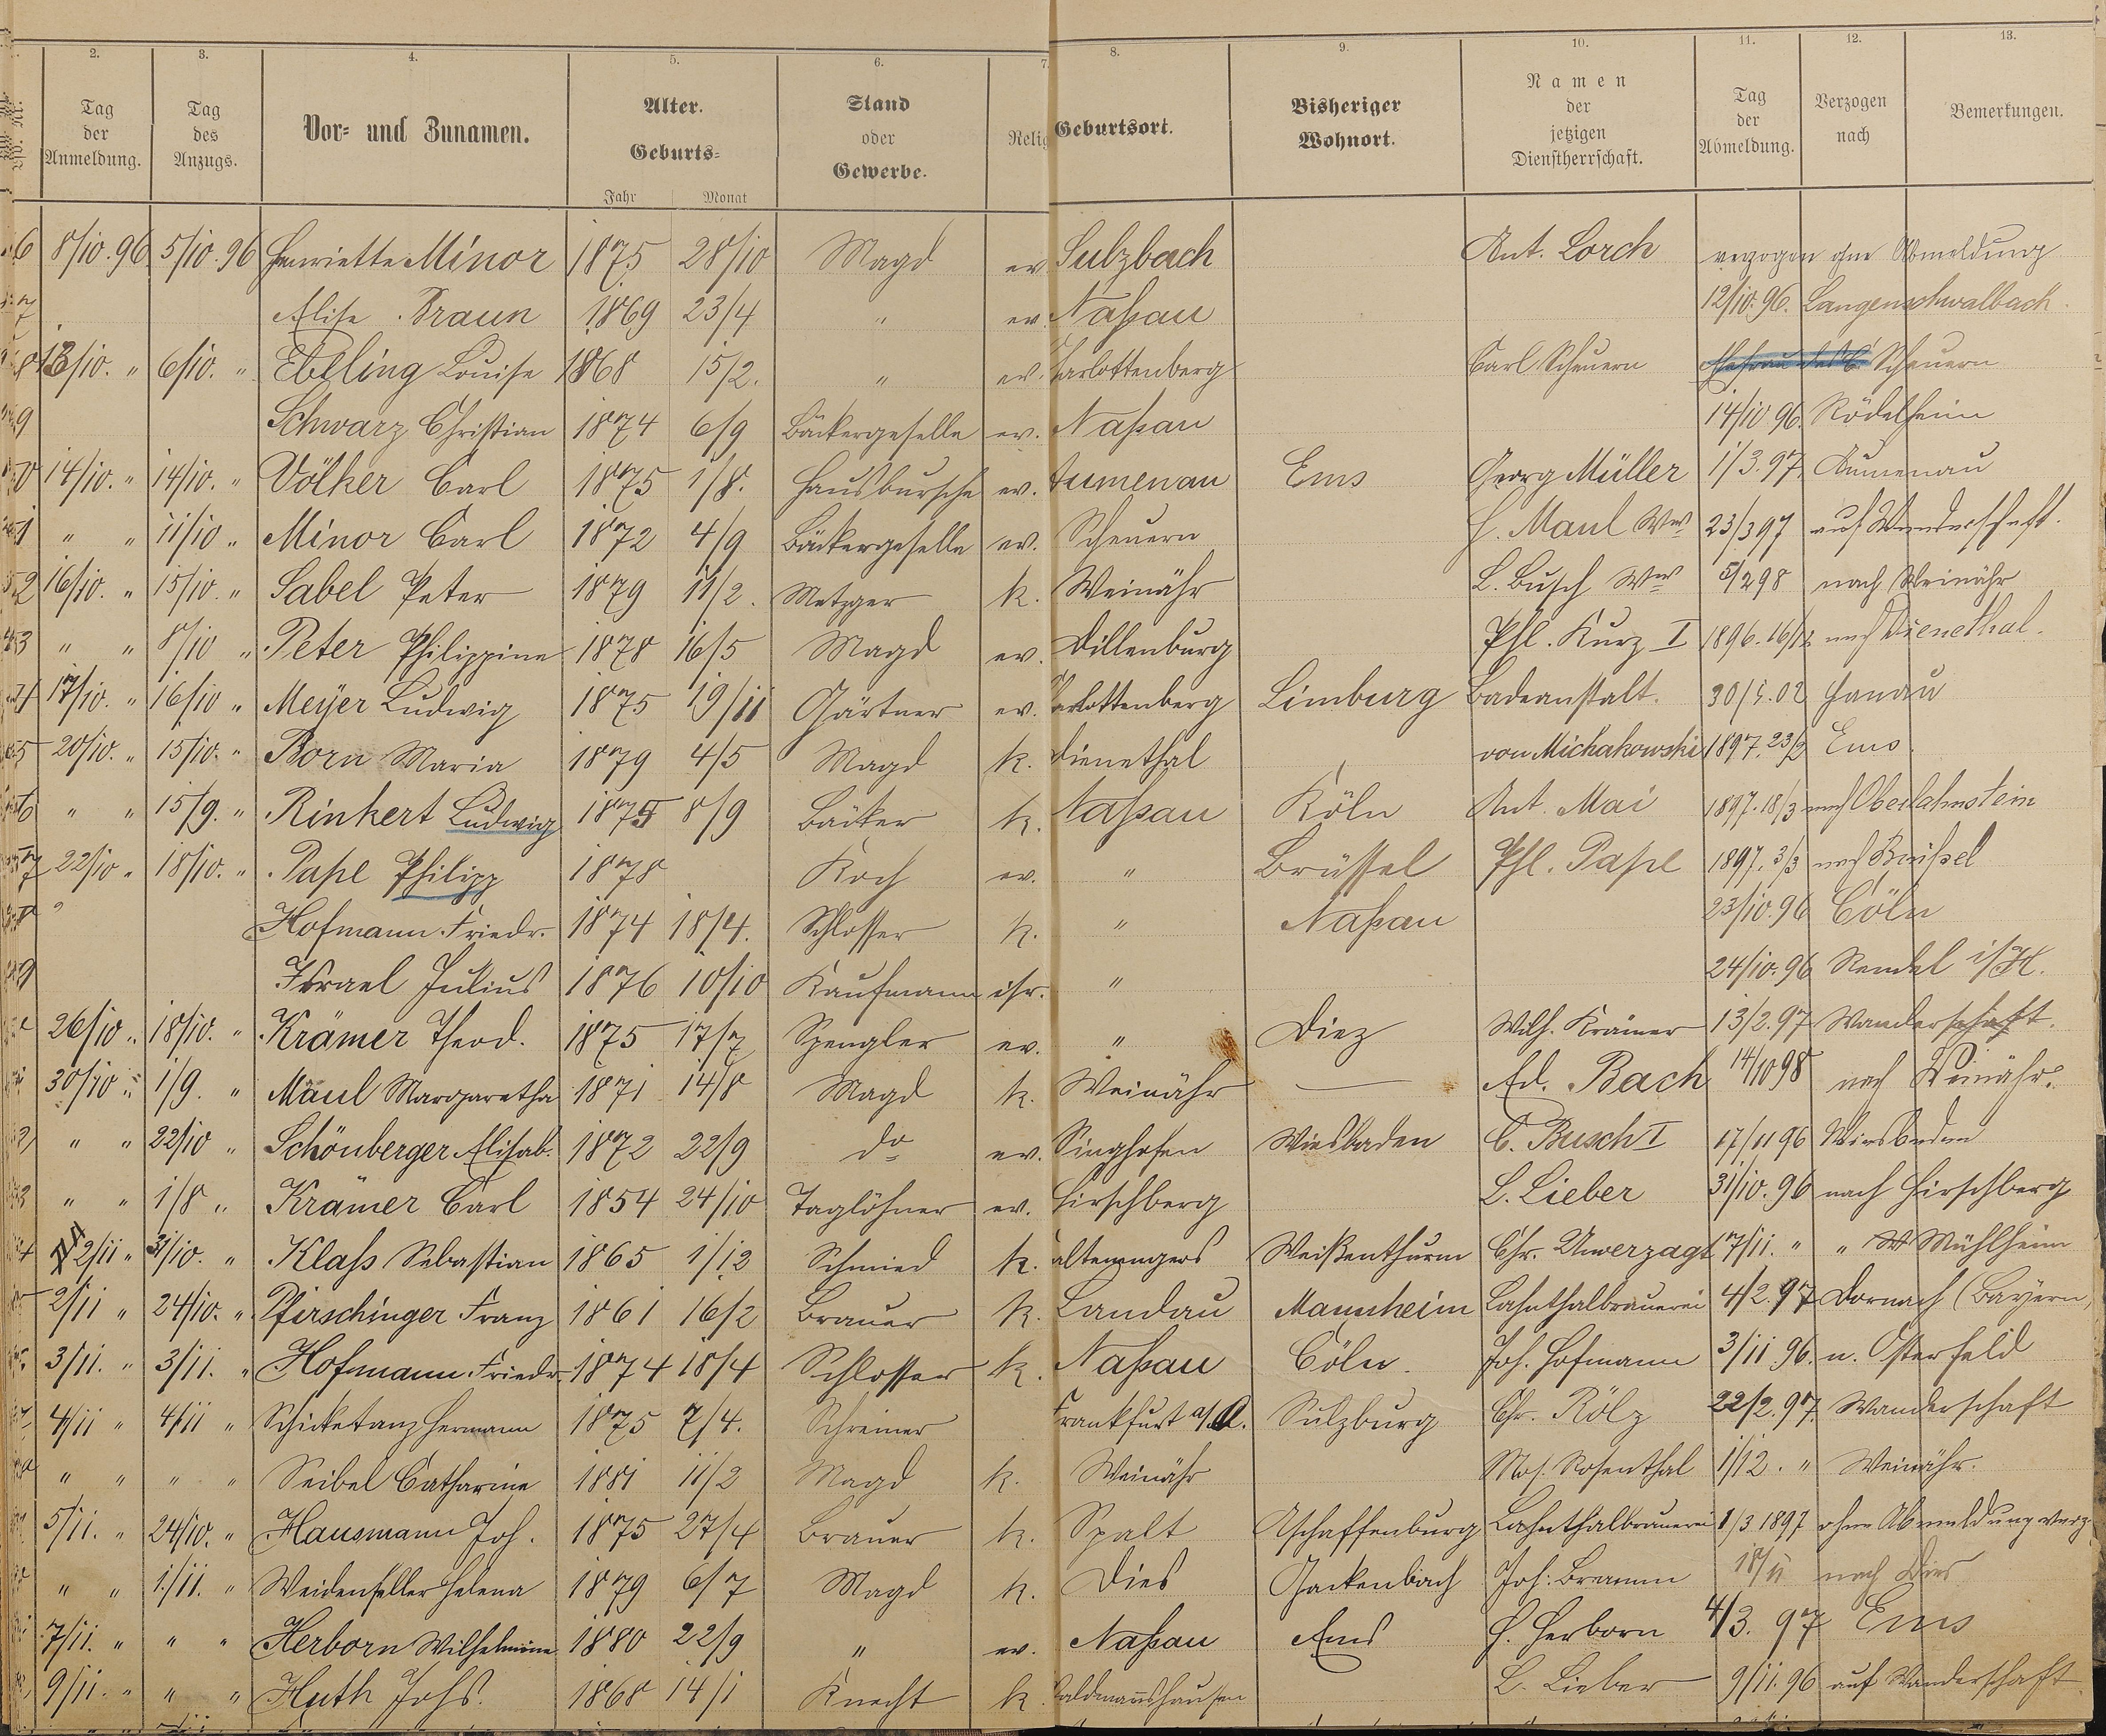 2. 3. 4. 5. 6. 7. 8. 9. 10. 11. 12. 13.
Tag der Anmeldung. Tag des Anzugs. Vor- und Zunamen. Alter. Geburts- Jahr Monat Stand oder Gewerbe. Relig Geburtsort. Bisheriger Wohnort. Namen der jetzigen Dienstherrschaft. Tag der Abmeldung. Verzogen nach Bemerkungen.
6 8/10.96 5/10.96 Henriette Minor 1875 28/10 Magd ev Sulzbach Ant. Lorch verzogen ohne Abmeldung
7 Elise Braun 1869 23/4 " ev. Naßau 12/10.96. Langenschwalbach.
8 13/10. " 6/10. " Ebeling Louise 1868 15/2. " ev. Charlottenberg Carl Scheuern Ehefrau des C. Scheuern
9 Schwarz Christian 1874 6/9 Bäckergeselle ev. Naßau 14/10 96. Rödelheim
0 14/10. " 14/10. " Völker Carl 1875 1/8. Hausbursche ev. Aumenau Ems Georg Müller 1/3.97 Aumenau
1 " " 11/10 " Minor Carl 1872 4/9 Bäckergeselle ev. Scheuern H. Maul Wwe 23/3 97 auf Wanderschaft.
52 16/10. " 15/10. " Sabel Peter 1879 11/2. Metzger k. Weinähr L. Busch Wwe 5/2 98 nach Weinähr
3 " " 8/10 " Peter Philippine 1878 16/5 Magd ev. Dillenburg Phl. Kurz I 1896. 16/12 nach Dienethal.
17/10. " 16/10 " Meyer Ludwig 1875 19/11 Gärtner ev. Charlottenberg Limburg Badeanstalt. 30/5.02 Hanau
5 20/10. " 15/10. " Born Maria 1879 4/5 Magd k. Dienethal von Michakowski 1897. 23/2 Ems.
6 " " 15/9. " Rinkert Ludwig 1875 8/9 Bäcker k. Naßau Köln Ant. Mai 1897. 18/3 nach Oberlahnstein
7 22/10 " 18/10. " Pape Philipp 1878 Koch ev. " Brüssel Phl. Pape 1897. 3/3 nach Brüssel
Hofmann Friedr. 1874 18/4. Schlosser k. " Naßau 23/10.96 Cöln
9 Israel Julius 1876 10/10 Kaufmann isr. " 24/10.96 Rendel i/H.
26/10 " 18/10. " Krämer Theod. 1875 17/7 Spengler ev. " Diez Wilh. Krämer 13/2.97 Wanderschaft.
30/10 " 1/9. " Maul Margaretha 1871 14/8 Magd k. Weinähr — Ad. Bach 14/10 98 nach Weinähr.
2 " " 22/10 " Schönberger Elisab. 1872 22/9 do ev. Singhofen Wiesbaden C. Busch I 17/11 96 Wiesbaden
3 " " 1/8 " Krämer Carl 1854 24/10 Taglöhner ev. Hirschberg L. Lieber 31/10. 96 nach Hirschberg
4 2/11 " 31/10. " Klaß Sebastian 1865 1/12 Schmied k. Kaltenengers Weißenthurm Chr. Unverzagt 17/11. " " Mühlheim
2/11 " 24/10. " Pfirschinger Franz 1861 16/2 Brauer k. Landau Mannheim Lahnthalbrauerei 4/2.97 Dornach (Bayern)
3/11. " 3/11. " Hofmann Friedr. 1874 18/4 Schlosser k. Naßau Cöln. Joh. Hofmann 3/11 96. n. Osterfeld
4/11 " 4/11 " Schicketanz Hermann 1875 7/4. Schreiner Frankfurt a/O. Sulzburg Chr. Rölz 22/2.97. Wanderschaft
" " " " Seibel Catharine 1881 11/2 Magd k. Weinähr Mos. Rosenthal 1/12. " Weinähr.
5/11. " 24/10. " Hausmann Joh. 1875 27/4 Brauer k. Spalt Aschaffenburg Lahnthalbrauerei 1/3 1897 ohne Abmeldung verz.
" " 1./11. " Weidenfeller Helena 1879 6/7 Magd k. Dies Gackenbach Joh. Bramm 18/11 nach Dies
7/11. " " " Herborn Wilhelmine 1880 22/9 " ev. Naßau Ems H. Herborn 4/3. 97 Ems
9/11. " " " Huth Johs. 1868 14/1 Knecht k. Waldmannshausen L. Lieber 9/11.96 auf Wanderschaft